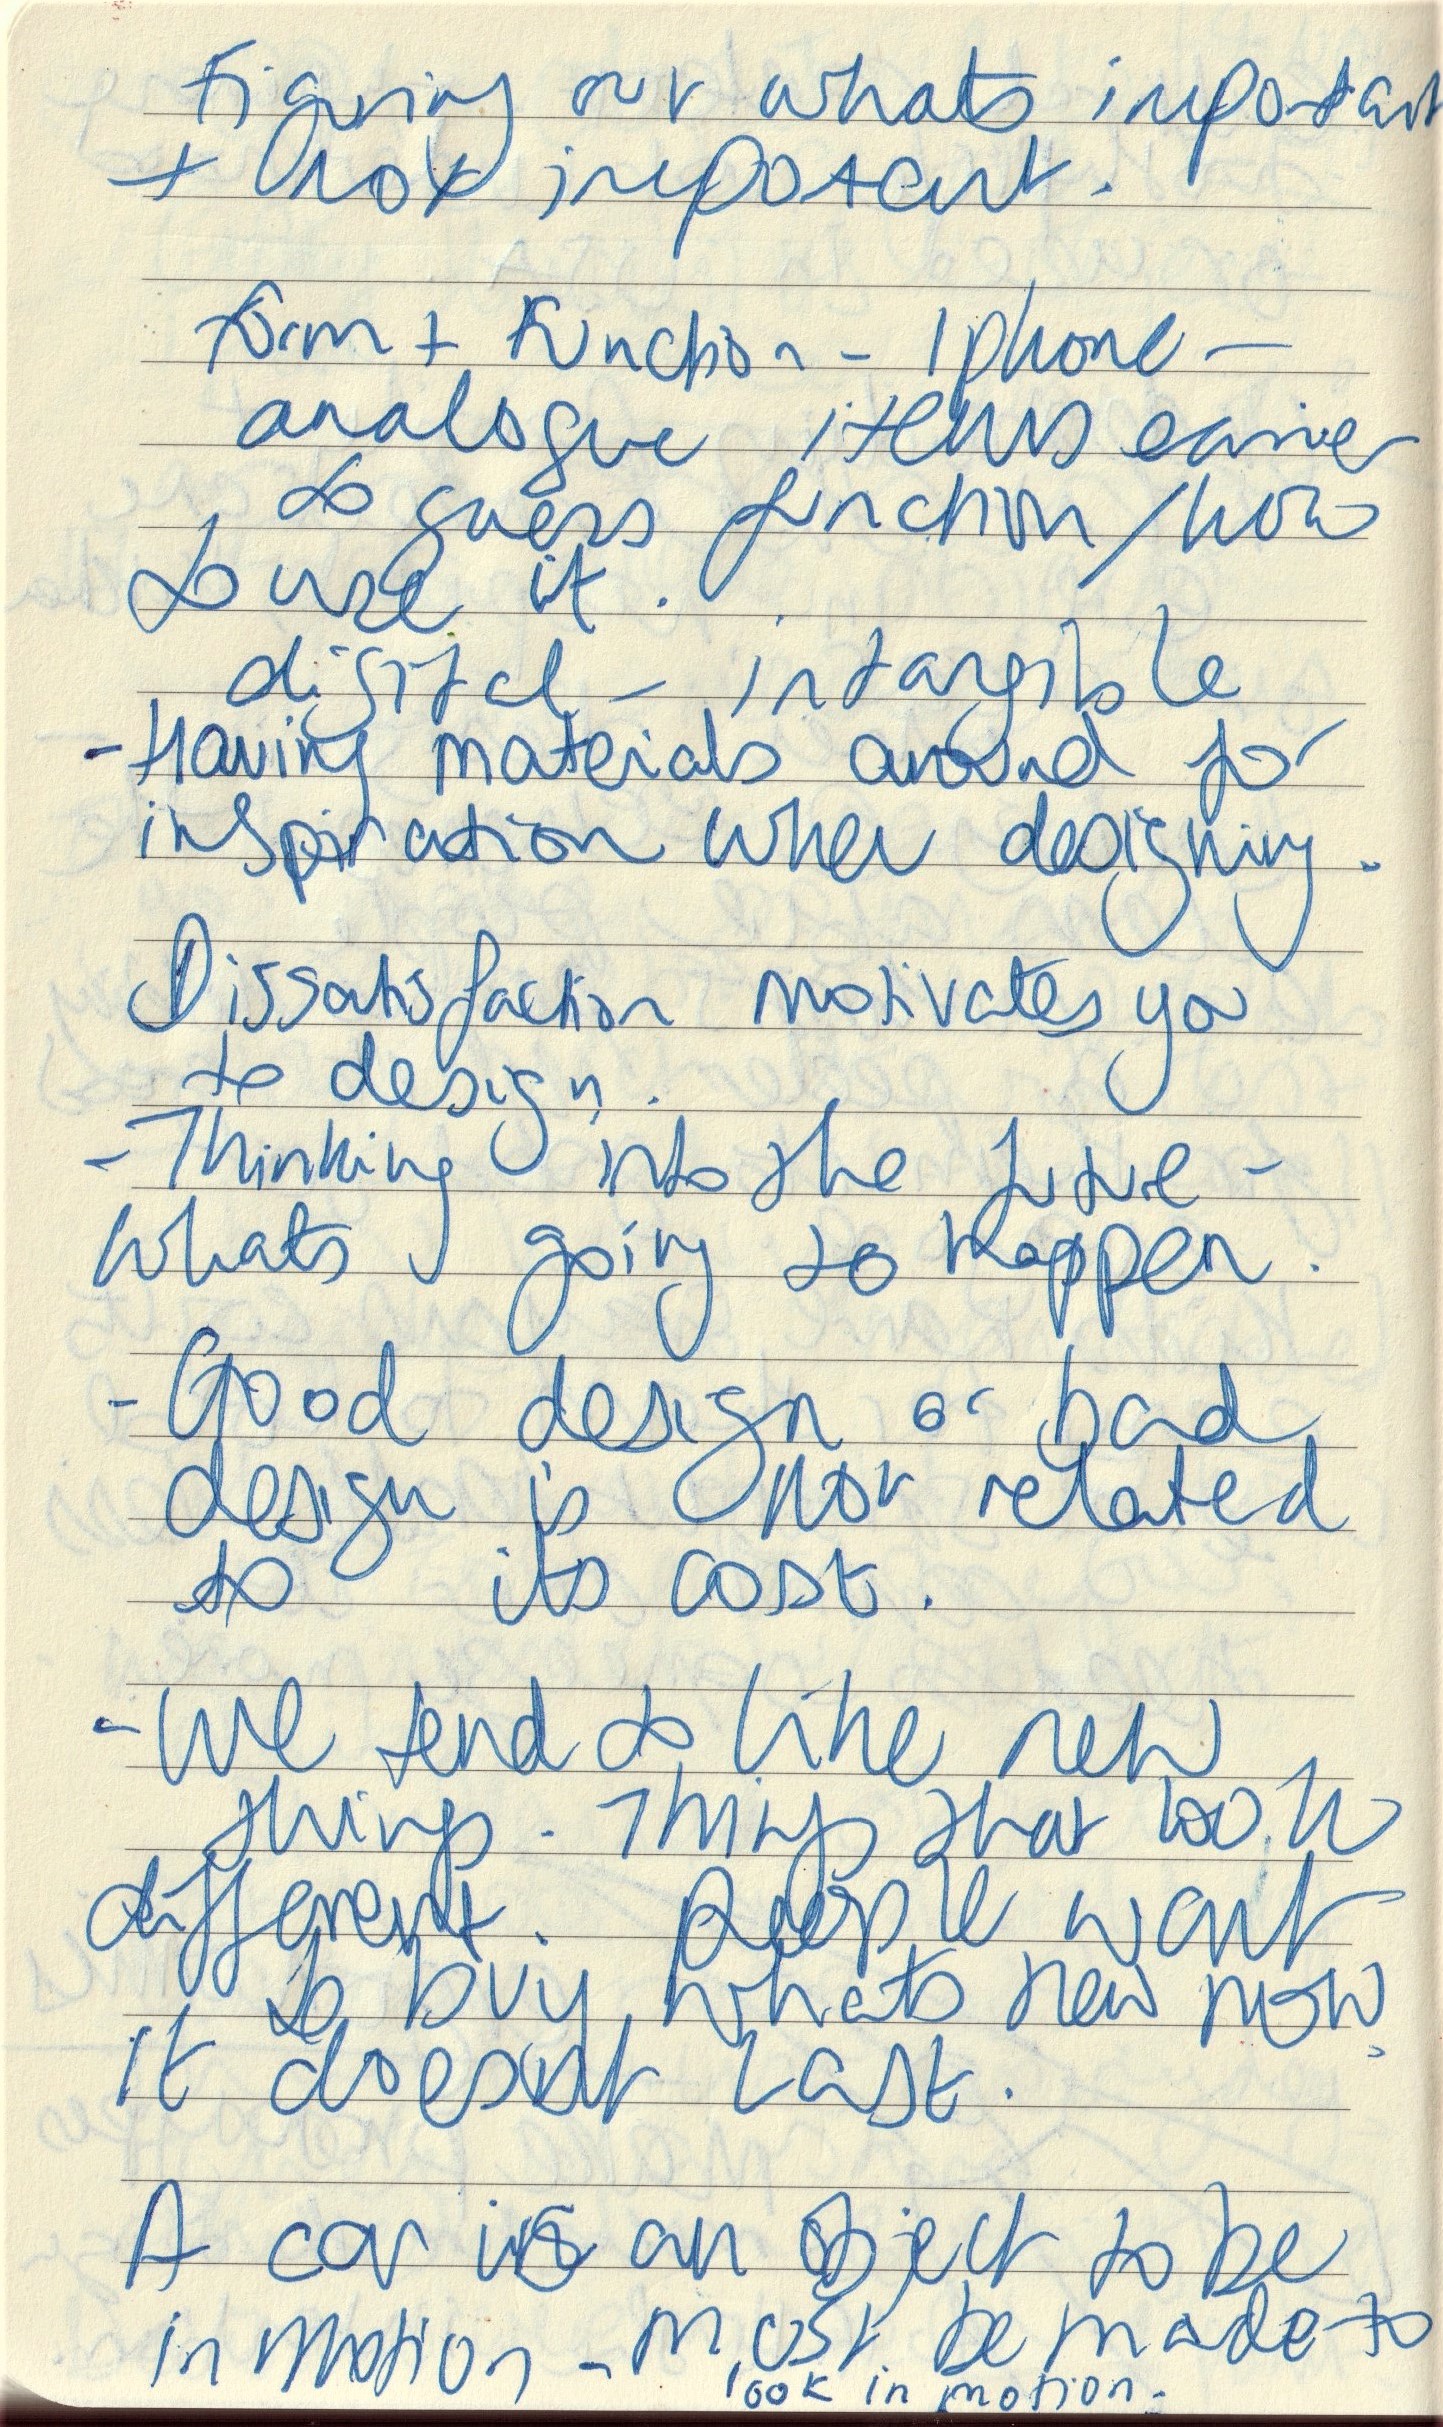 Figuring out whats important
+ not important.
Form + Function - Iphone -
analogue items easier
to guess function/how
to use it.
digital - intangible
- Having materials around for
inspiration when designing.
Dissatisfaction motivates you
to design.
- Thinking into the future -
whats going to happen.
- Good design or bad
design is not related
to its cost.
- We tend to like new
things. Things that look
different. People want
to buy whats new now,
it doesnt last.
A car is an object to be
in motion - must be made to
look in motion.